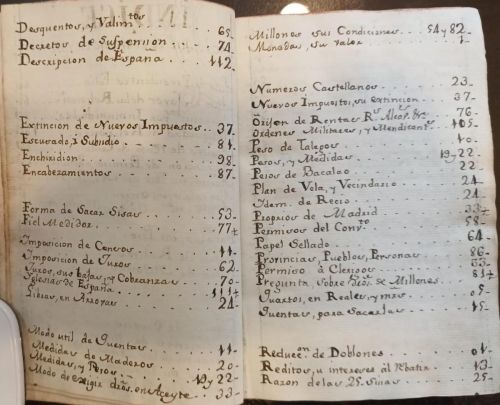 Desquentos, y Valim.tos . . . 65
Decretos de Suspension . . . 74
Descripcion de España . . . 112
Extincion de Nuevos Impuestos . . 37
Escusado, i Subsidio . . . 81
Enchiridion . . . 98
Encabezamientos . . . 87
Forma de Sacar Sisas . . . 53
Fiel Medidor . . . 77
Imposicion de Censos . . . 11
Imposicion de Juros . . . 62
Juros, sus bajas, y Cobranzas . . 70
Iglesias de España . . . 111
Libras, en Arrovas . . . 24
Modo util de Cuentas . . . 11
Medidas de Maderos . . . 20
Medidas, y Pesos . . . 19 y 22
Modo de exigir dros. en Aceyte . . 33
Millones sus Condiciones . . 54 y 82
Monadas, su valor . . . 1
Numeros Castellanos . . . 23
Nuevos Impuestos, su extincion . . 37
Orijen de Rentas R.s Alcav. &c. . . 76
Ordenes Militares, y Mendicant.s . . 105
Peso de Talegos . . . 10
Pesos, y Medidas . . . 19 y 22
Pesos de Bacalao . . . 22
Plan de Vela, y Vecindario . . . 24
Idem. de Recio . . . 24
Propios de Madrid . . . 33
Permisos del Conv.to . . . 58
Papel Sellado . . . 64
Provincias, Pueblos, Personas . . 86
Permiso à Clerigos . . . 33
Pregunta sobre de Millones . . 81
Quartos, en Reales, y mrs . . 05
Quentas, para Sacarlas . . . 15
Reducc.on de Doblones . . . 01
Reditos, u intereses al Rebatir . . 13
Razon de las 25 Sisas . . . 25